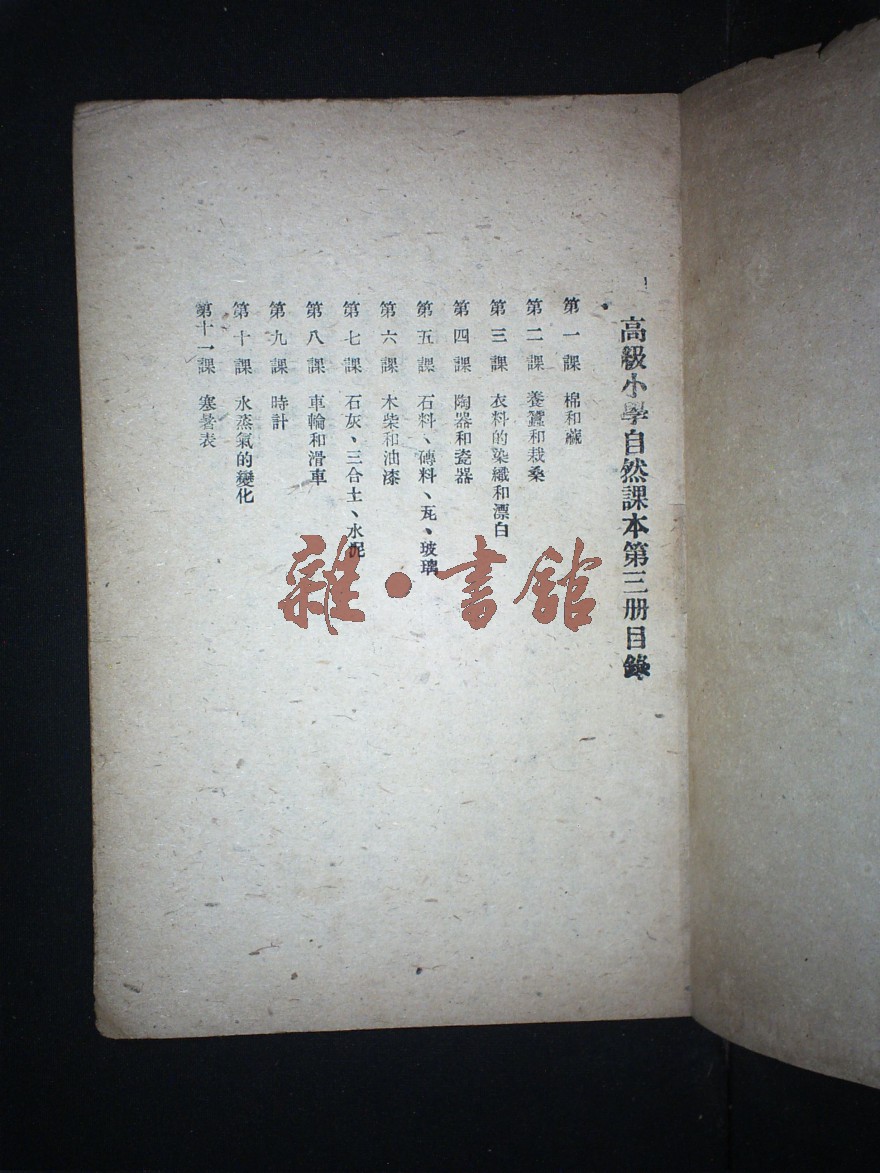 高級小學自然課本第三册目錄
第一課 棉和蔴
第二課 養蠶和栽桑
第三課 衣料的染織和漂白
第四課 陶器和瓷器
第五課 石料、磚料、瓦、玻璃
第六課 木柴和油漆
第七課 石灰、三合土、水泥
第八課 車輪和滑車
第九課 時計
第十課 水蒸氣的變化
第十一課 寒暑表
雜·書館